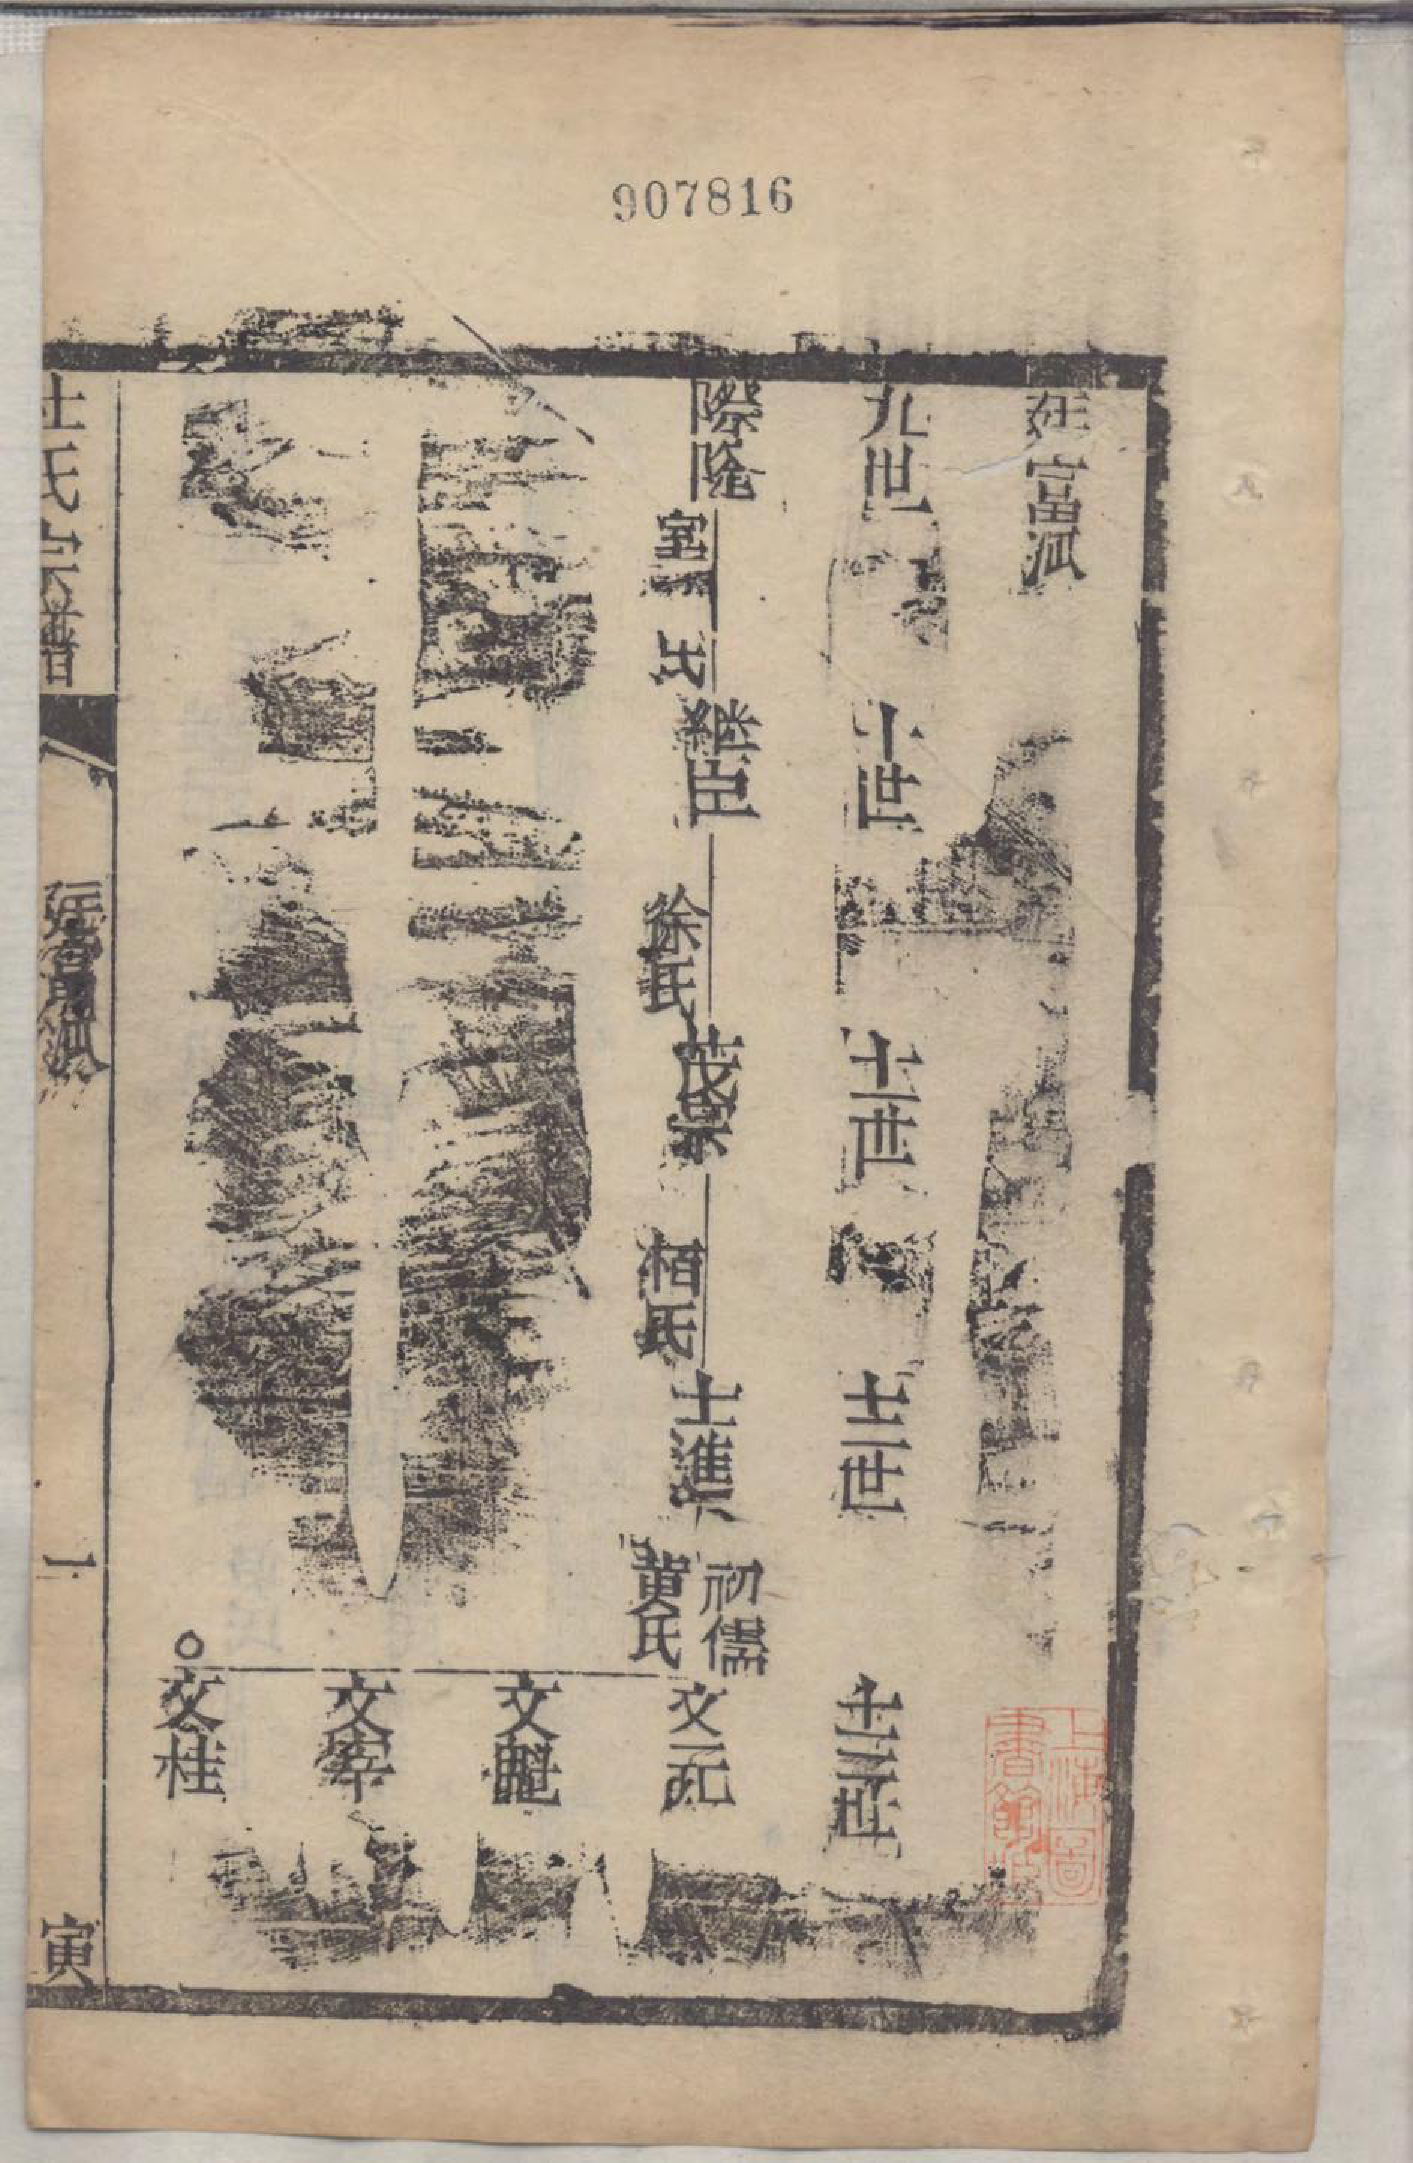 907816
廷富派
九世
十世
十一世
十二世
十三世
際隆
氏
継臣
徐氏
茂宗
栢氏
士進
初儒
黄氏
文元
文魁
文宰
○文桂
杜氏宗譜
廷富派
一
寅
上海圖書館藏